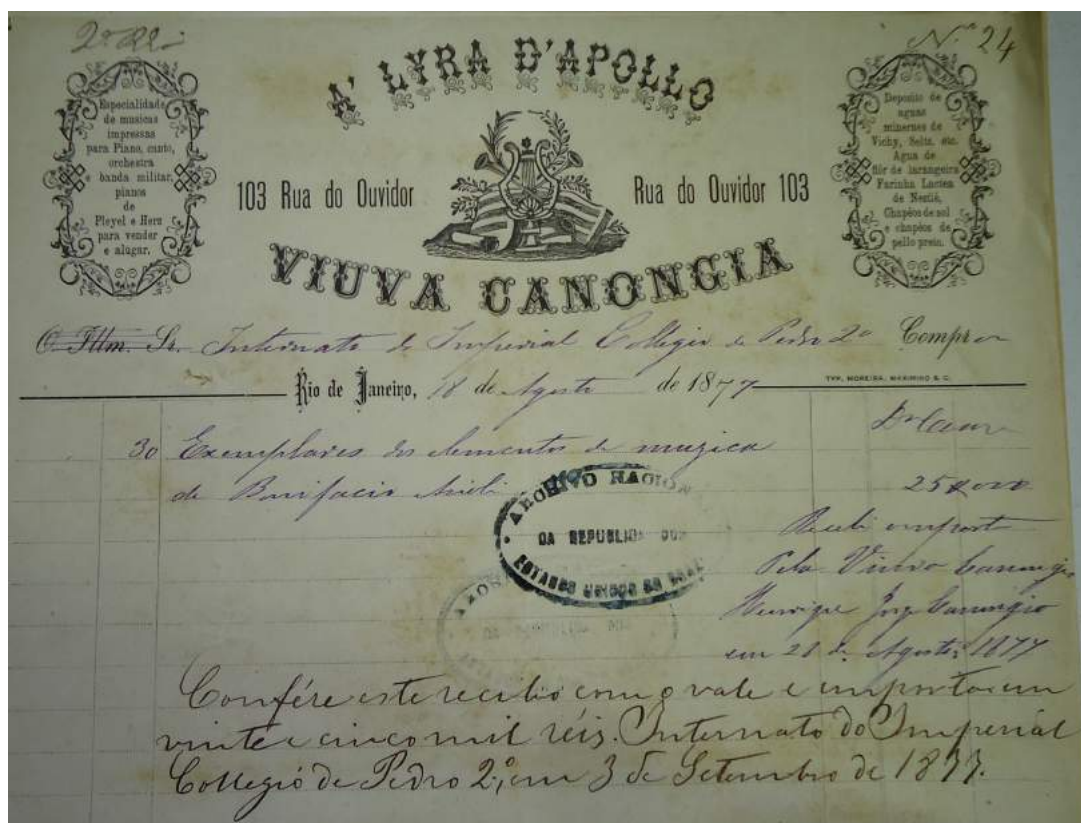 2ª
Nº 24
A' LYRA D'APOLLO
Especialidade
de musicas
impressas
para Piano, canto,
orchestra
e banda militar,
pianos
de
Pleyel e Herz
para vender
e alugar.
103 Rua do Ouvidor
Rua do Ouvidor 103
Deposito de
aguas
minernes de
Vichy, Seltz, etc.
Agua de
flôr de larangeira
Farinha Lactea
de Nestlé,
Chapéos de sol
e chapéos de
pello preto.
VIUVA CANONGIA
O Illm. Sr. Internato do Imperial Collegio de Pedro 2º Comprou
Rio de Janeiro, 18 de Agosto de 1877
TYP. MOREIRA, MAXIMINO & C.
30 Exemplares dos elementos de muzica
de Bonifacio 25$000
ARCHIVO NACIONAL
DA REPUBLICA DOS
ESTADOS UNIDOS DO BRAZIL
Recebi importe
Pela Viuva Canongia
Henrique Jorge Canongia
em 21 de Agosto 1877
Confére este recibo com o vale e importa em
vinte e cinco mil réis. Internato do Imperial
Collegio de Pedro 2º, em 3 de Setembro de 1877.